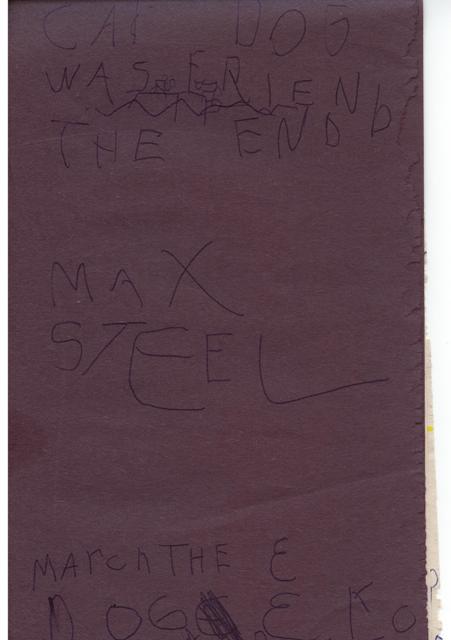 CAT DOG
WAS FRIEND
THE END
MAX
STEEL
MArchTHE E
DOG E K